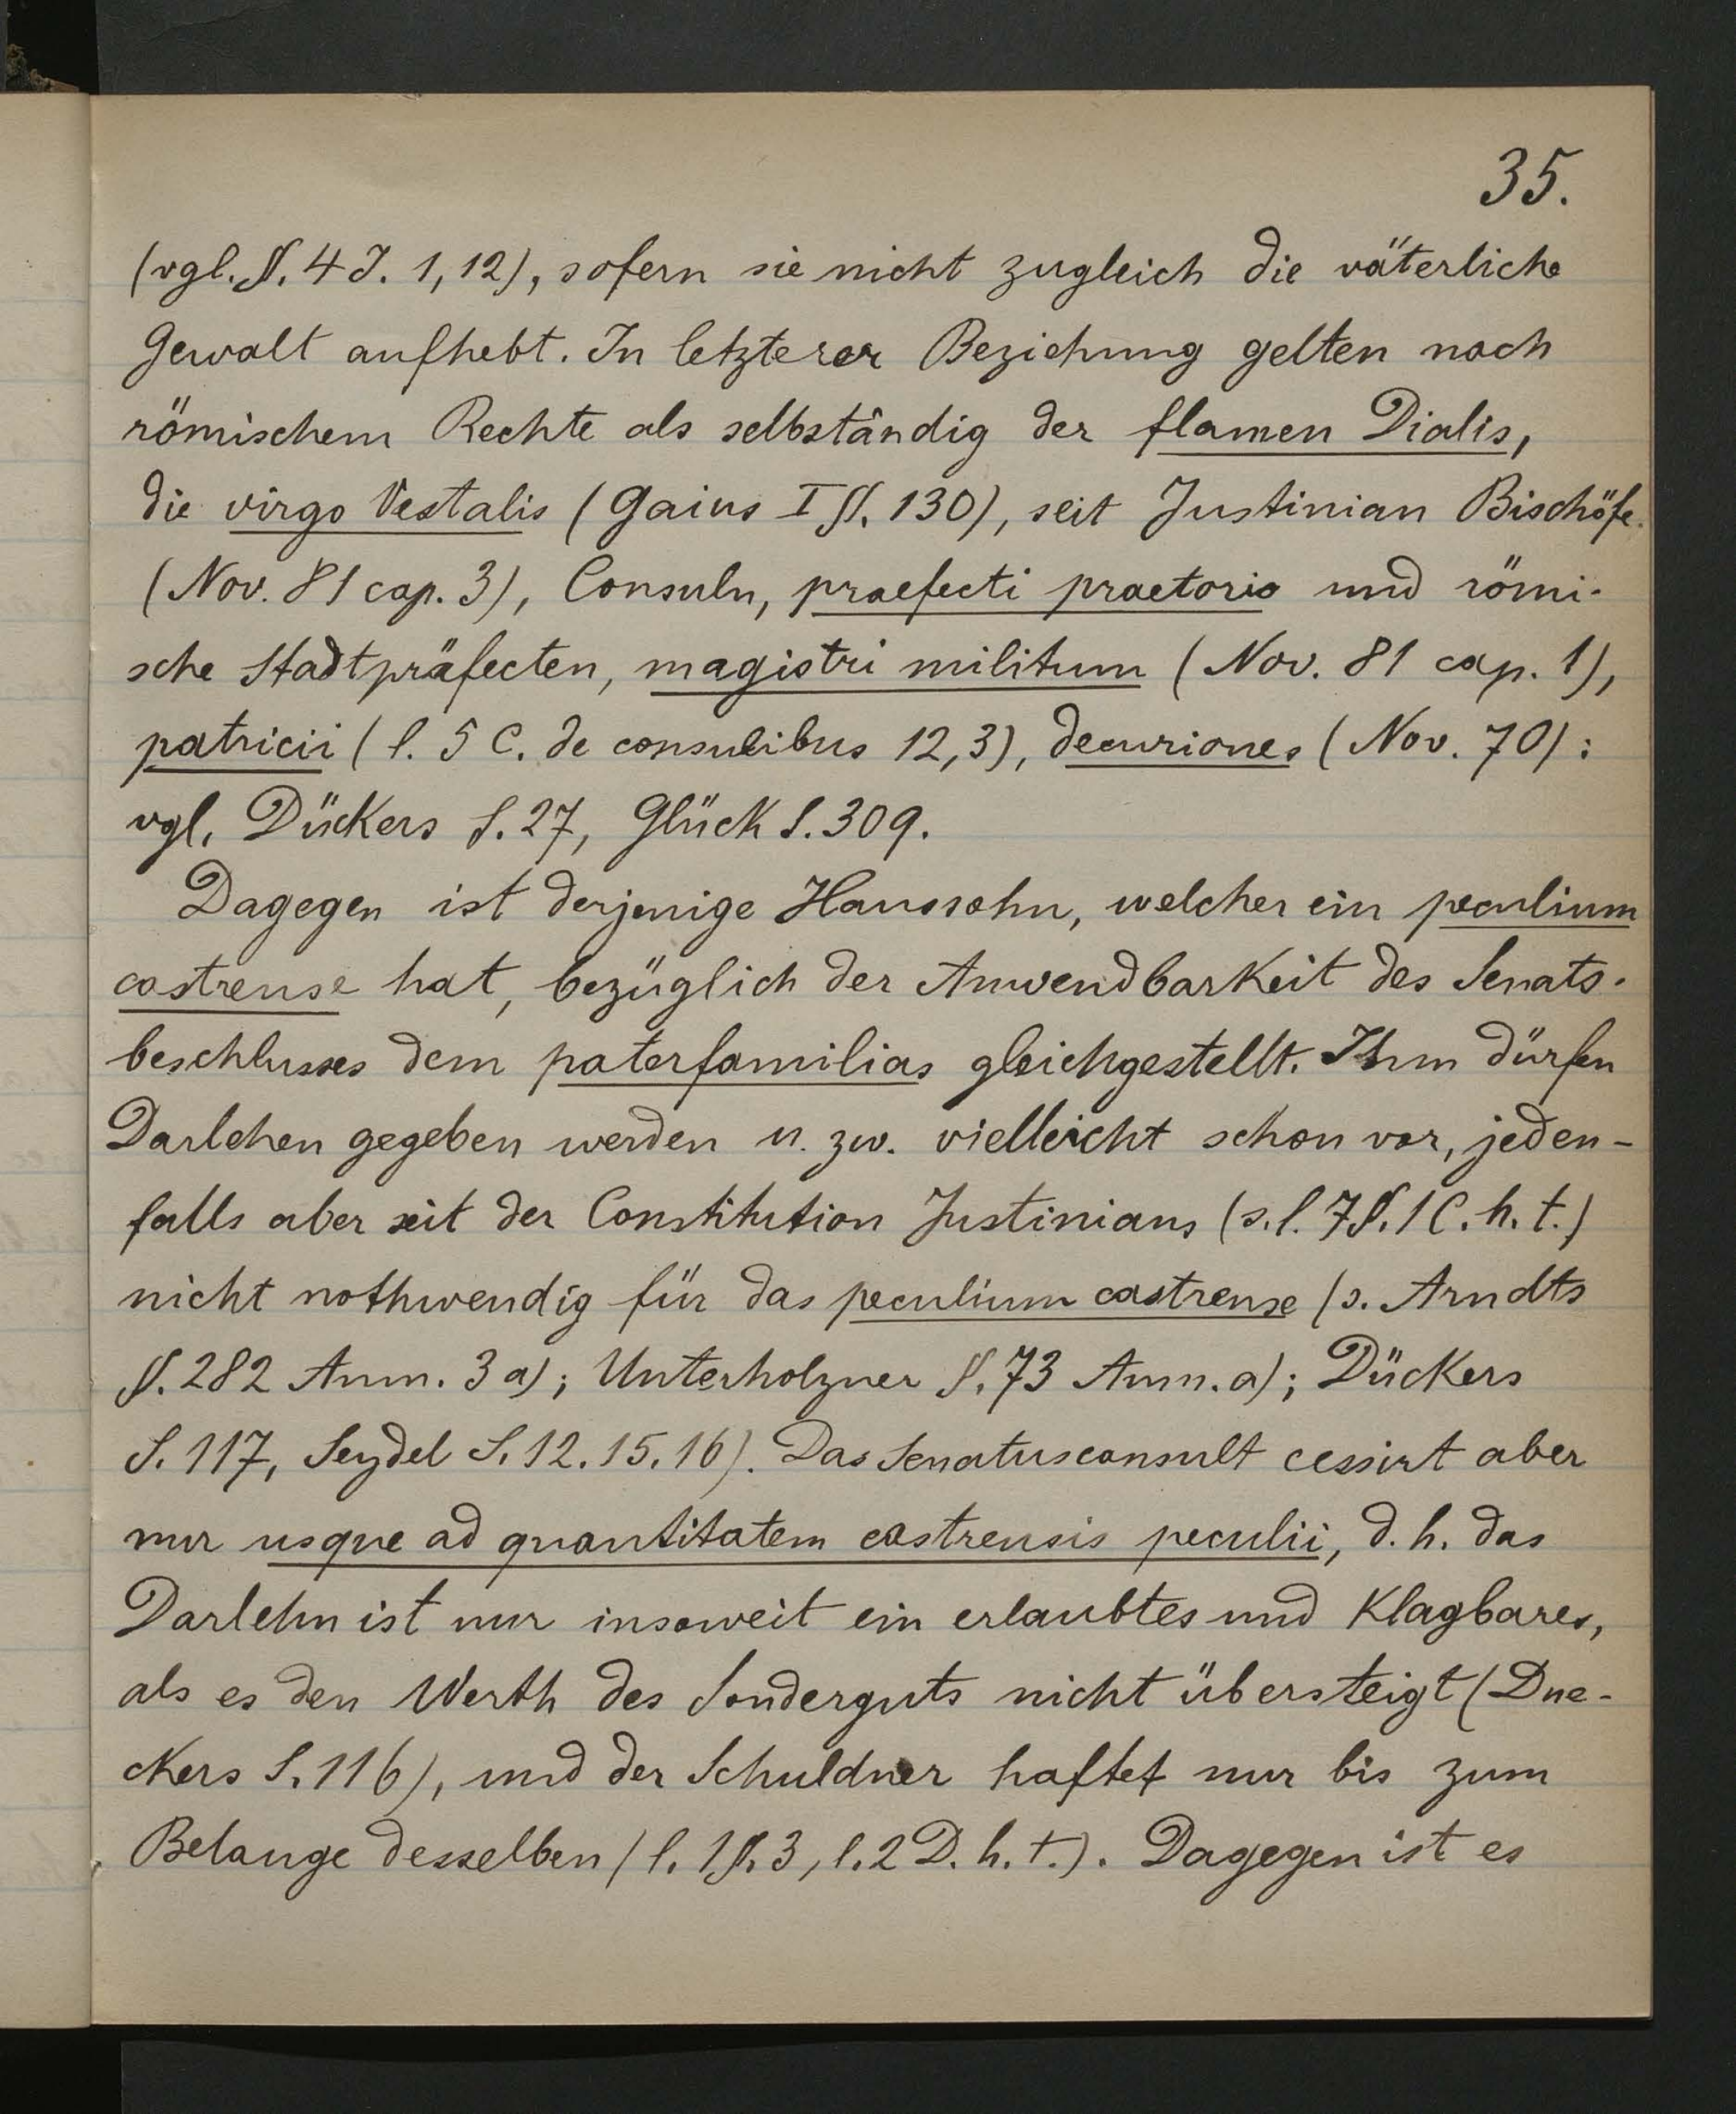 35.
(vgl. §. 4 J. 1, 12), sofern sie nicht zugleich die väterliche
Gewalt aufhebt. In letzterer Beziehung gelten nach
römischem Rechte als selbständig der flamen Dialis,
die virgo Vestalis (Gaius I §. 130), seit Justinian Bischöfe
(Nov. 81 cap. 3), Consuln, praefecti praetorio und römi-
sche Stadtpräfecten, magistri militum (Nov. 81 cap. 1),
patricii (l. 5 C. de consulibus 12,3), decuriones (Nov. 70):
vgl. Dückers S. 27, Glück S. 309.
Dagegen ist derjenige Haussohn, welcher ein peculium
castrense hat, bezüglich der Anwendbarkeit des Senats-
beschlusses dem paterfamilias gleichgestellt. Ihm dürfen
Darlehen gegeben werden u. zw. vielleicht schon vor, jeden-
falls aber seit der Constitution Justinians (s. l. 7 §. 1 C. h. t.)
nicht nothwendig für das peculium castrense (s. Arndts
§. 282 Anm. 3 a); Unterholzner §. 73 Anm. a); Dückers
S. 117, Seydel S. 12. 15. 16). Das Senatusconsult cessirt aber
nur usque ad quantitatem castrensis peculii, d. h. das
Darlehn ist nur insoweit ein erlaubtes und klagbares,
als es den Werth des Sonderguts nicht übersteigt (Due-
ckers S. 116), und der Schuldner haftet nur bis zum
Belange desselben (l. 1 §. 3, l. 2 D. h. t.). Dagegen ist es